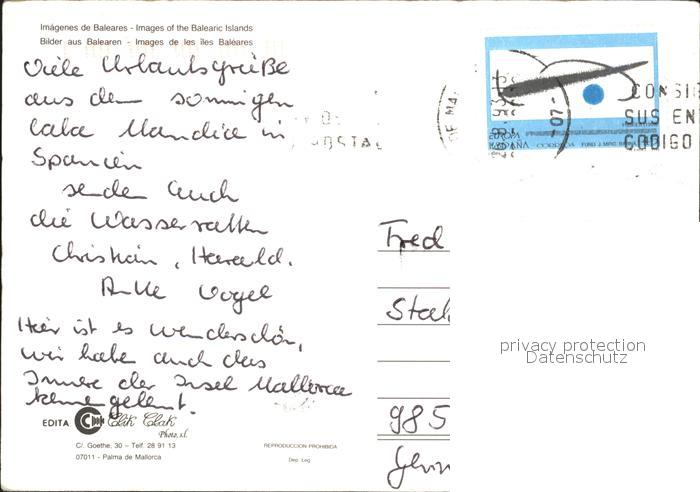 Imágenes de Baleares - Images of the Balearic Islands
Bilder aus Balearen - Images de les îles Baléares
Viele Urlaubsgrüße
aus dem sonnigen
Cala Mandia in
Spanien
senden Euch
die Wasserratten
Christian, Harald.
Anke Vogel
Hier ist es wunderschön,
wir habe auch das
Innere der Insel Mallorca
kennengelernt.
EDITA Clik Clak
Photo, s.l.
C/. Goethe, 30 – Telf. 28 91 13
07011 - Palma de Mallorca
REPRODUCCION PROHIBIDA
Dep. Leg.
EUROPA
ESPAÑA CORREOS
-07-
CONSI
SUS EN
CODIGO
Fred
privacy protection
Datenschutz
985